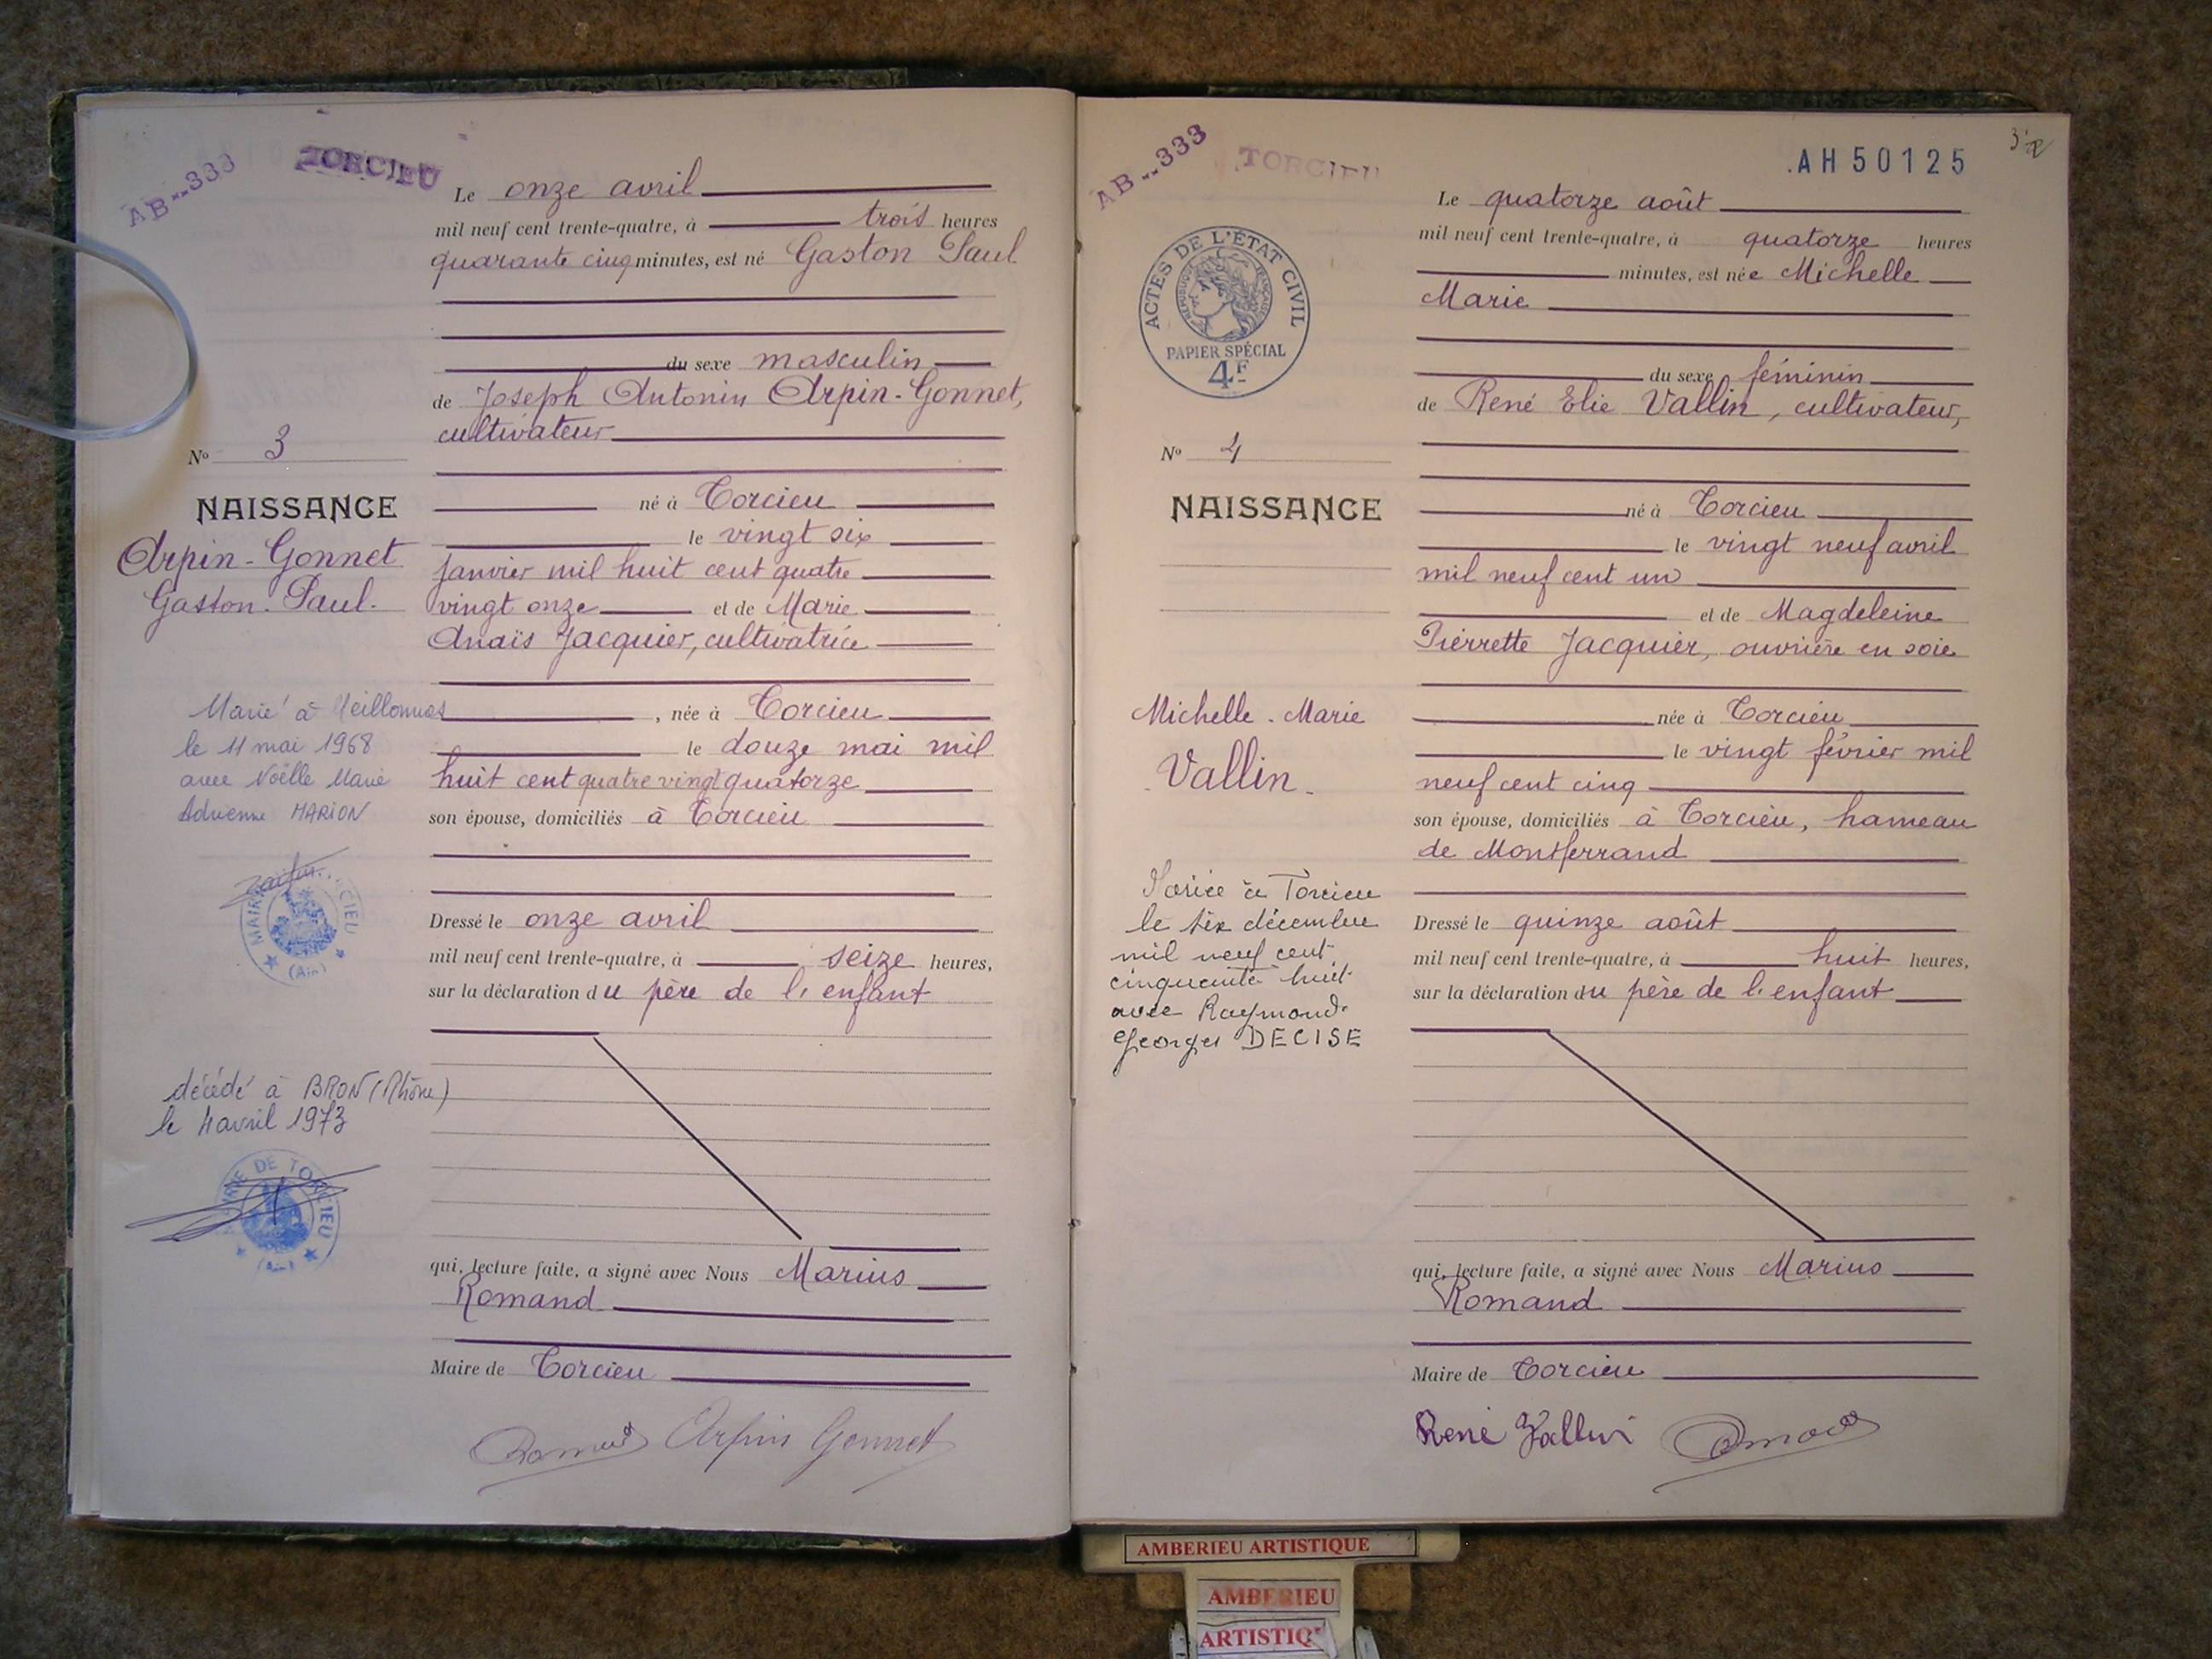 AB...333
TORCIEU
Le onze avril
mil neuf cent trente-quatre, à trois heures
quarante cinq minutes, est né Gaston Paul
du sexe masculin
de Joseph Antonin Arpin-Gonnet,
cultivateur
né à Torcieu
le vingt six
janvier mil huit cent quatre
vingt onze et de Marie
Anaïs Jacquier, cultivatrice
, née à Torcieu
le douze mai mil
huit cent quatre vingt quatorze
son épouse, domiciliés à Torcieu
Dressé le onze avril
mil neuf cent trente-quatre, à seize heures,
sur la déclaration du père de l'enfant
qui, lecture faite, a signé avec Nous Marius
Romand
Maire de Torcieu
Romand Arpin Gonnet
No 3
NAISSANCE
Arpin-Gonnet
Gaston-Paul.
Marié à Meillonnas
le 11 mai 1968
avec Noëlle Marie
Adrienne MARION
MAIRIE CIEU
(Ain)
décédé à BRON (Rhône)
le 4 avril 1973
MAIRIE DE TORCIEU
(Ain)
AB...333
TORCIEU
AH 50125
Le quatorze août
mil neuf cent trente-quatre, à quatorze heures
minutes, est née Michelle
Marie
du sexe féminin
de René Elie Vallin, cultivateur,
né à Torcieu
le vingt neuf avril
mil neuf cent un
et de Magdeleine
Pierrette Jacquier, ouvrière en soie
née à Torcieu
le vingt février mil
neuf cent cinq
son épouse, domiciliés à Torcieu, hameau
de Montferrand
Dressé le quinze août
mil neuf cent trente-quatre, à huit heures,
sur la déclaration du père de l'enfant
qui, lecture faite, a signé avec Nous Marius
Romand
Maire de Torcieu
René Vallin Romand
ACTES DE L'ÉTAT CIVIL
REPUBLIQUE FRANÇAISE
PAPIER SPÉCIAL
4F
No 4
NAISSANCE
Michelle-Marie
Vallin.
Mariée à Torcieu
le six décembre
mil neuf cent
cinquante huit
avec Raymond-
Georges DECISE
AMBERIEU ARTISTIQUE
AMBERIEU
ARTISTIQ